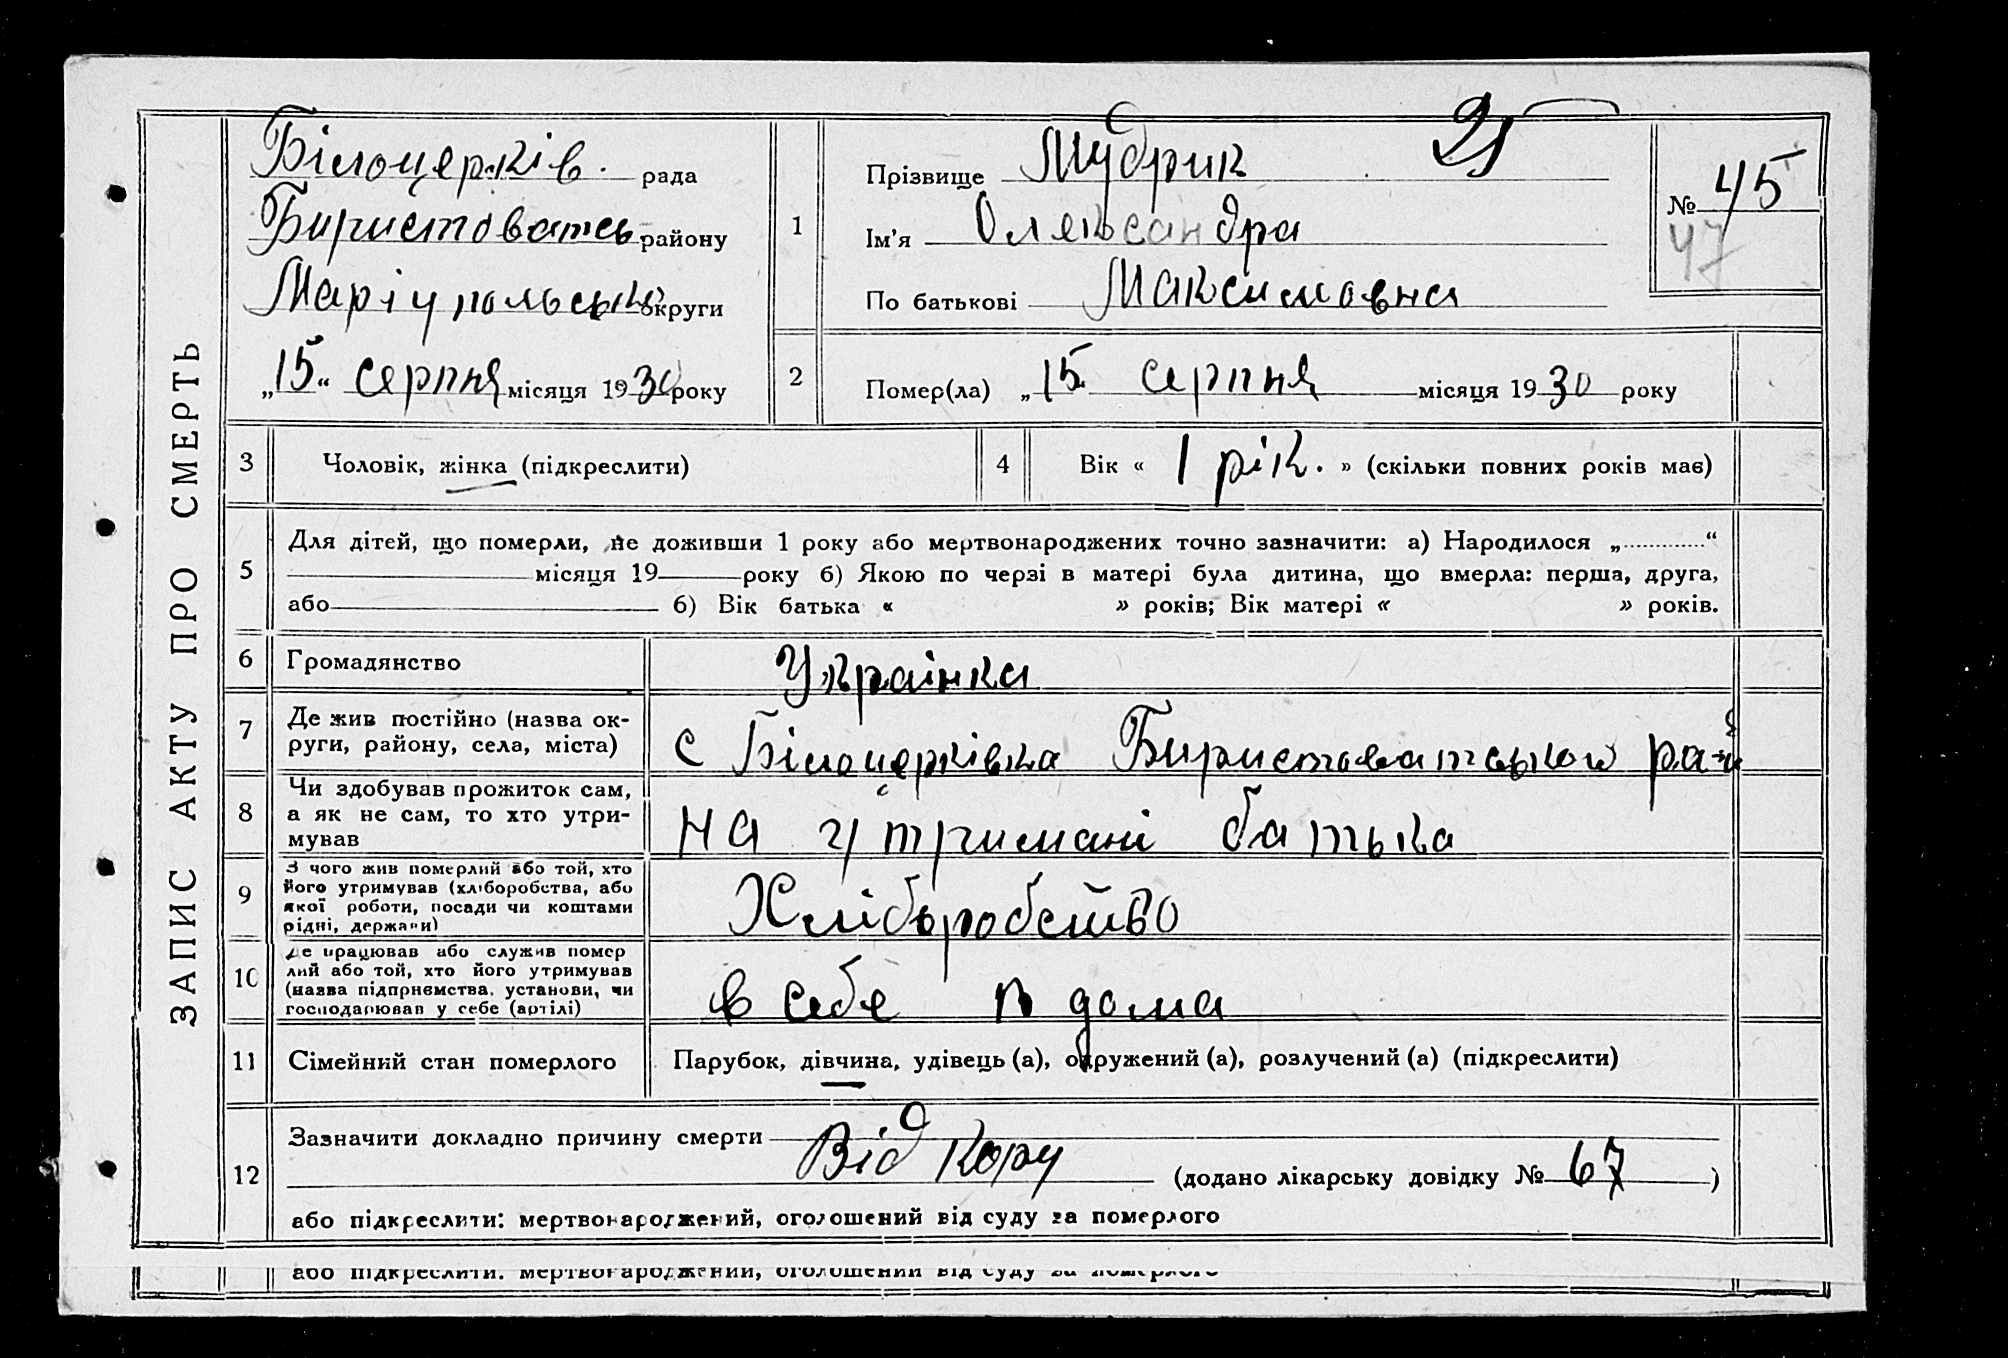 ЗАПИС АКТУ ПРО СМЕРТЬ
Білоцерків. рада
району
Маріупольської округи
„15“ серпня місяця 1930 року
1
Прізвище Мудрик 21
Ім’я Олександра
По батькові Максимовна
№ 45
47
2
Помер(ла) „15 серпня місяця 1930 року
3
Чоловік, жінка (підкреслити)
4
Вік « 1 рік. » (скільки повних років має)
5
Для дітей, що померли, не доживши 1 року або мертвонароджених точно зазначити: а) Народилося „ “
місяця 19 року б) Якою по черзі в матері була дитина, що вмерла: перша, друга,
або б) Вік батька « » років; Вік матері « » років.
6
Громадянство
Украінка
7
Де жив постійно (назва ок-
руги, району, села, міста)
с Білоцерківка рай
8
Чи здобував прожиток сам,
а як не сам, то хто утри-
мував
на утримані батька
9
З чого жив померлий або той, хто
його утримував (хліборобства, або
якої роботи, посади чи коштами
рідні, держави)
Хліборобство
10
Де працював або служив помер
лий або той, хто його утримував
(назва підприємства, установи, чи
господарював у себе (артілі)
в себе в дома
11
Сімейний стан померлого
Парубок, дівчина, удівець (а), одружений (а), розлучений (а) (підкреслити)
12
Зазначити докладно причину смерти
Від кору (додано лікарську довідку № 67 )
або підкреслити: мертвонароджений, оголошений від суду за померлого
або підкреслити: мертвонароджений, оголошений від суду за померлого